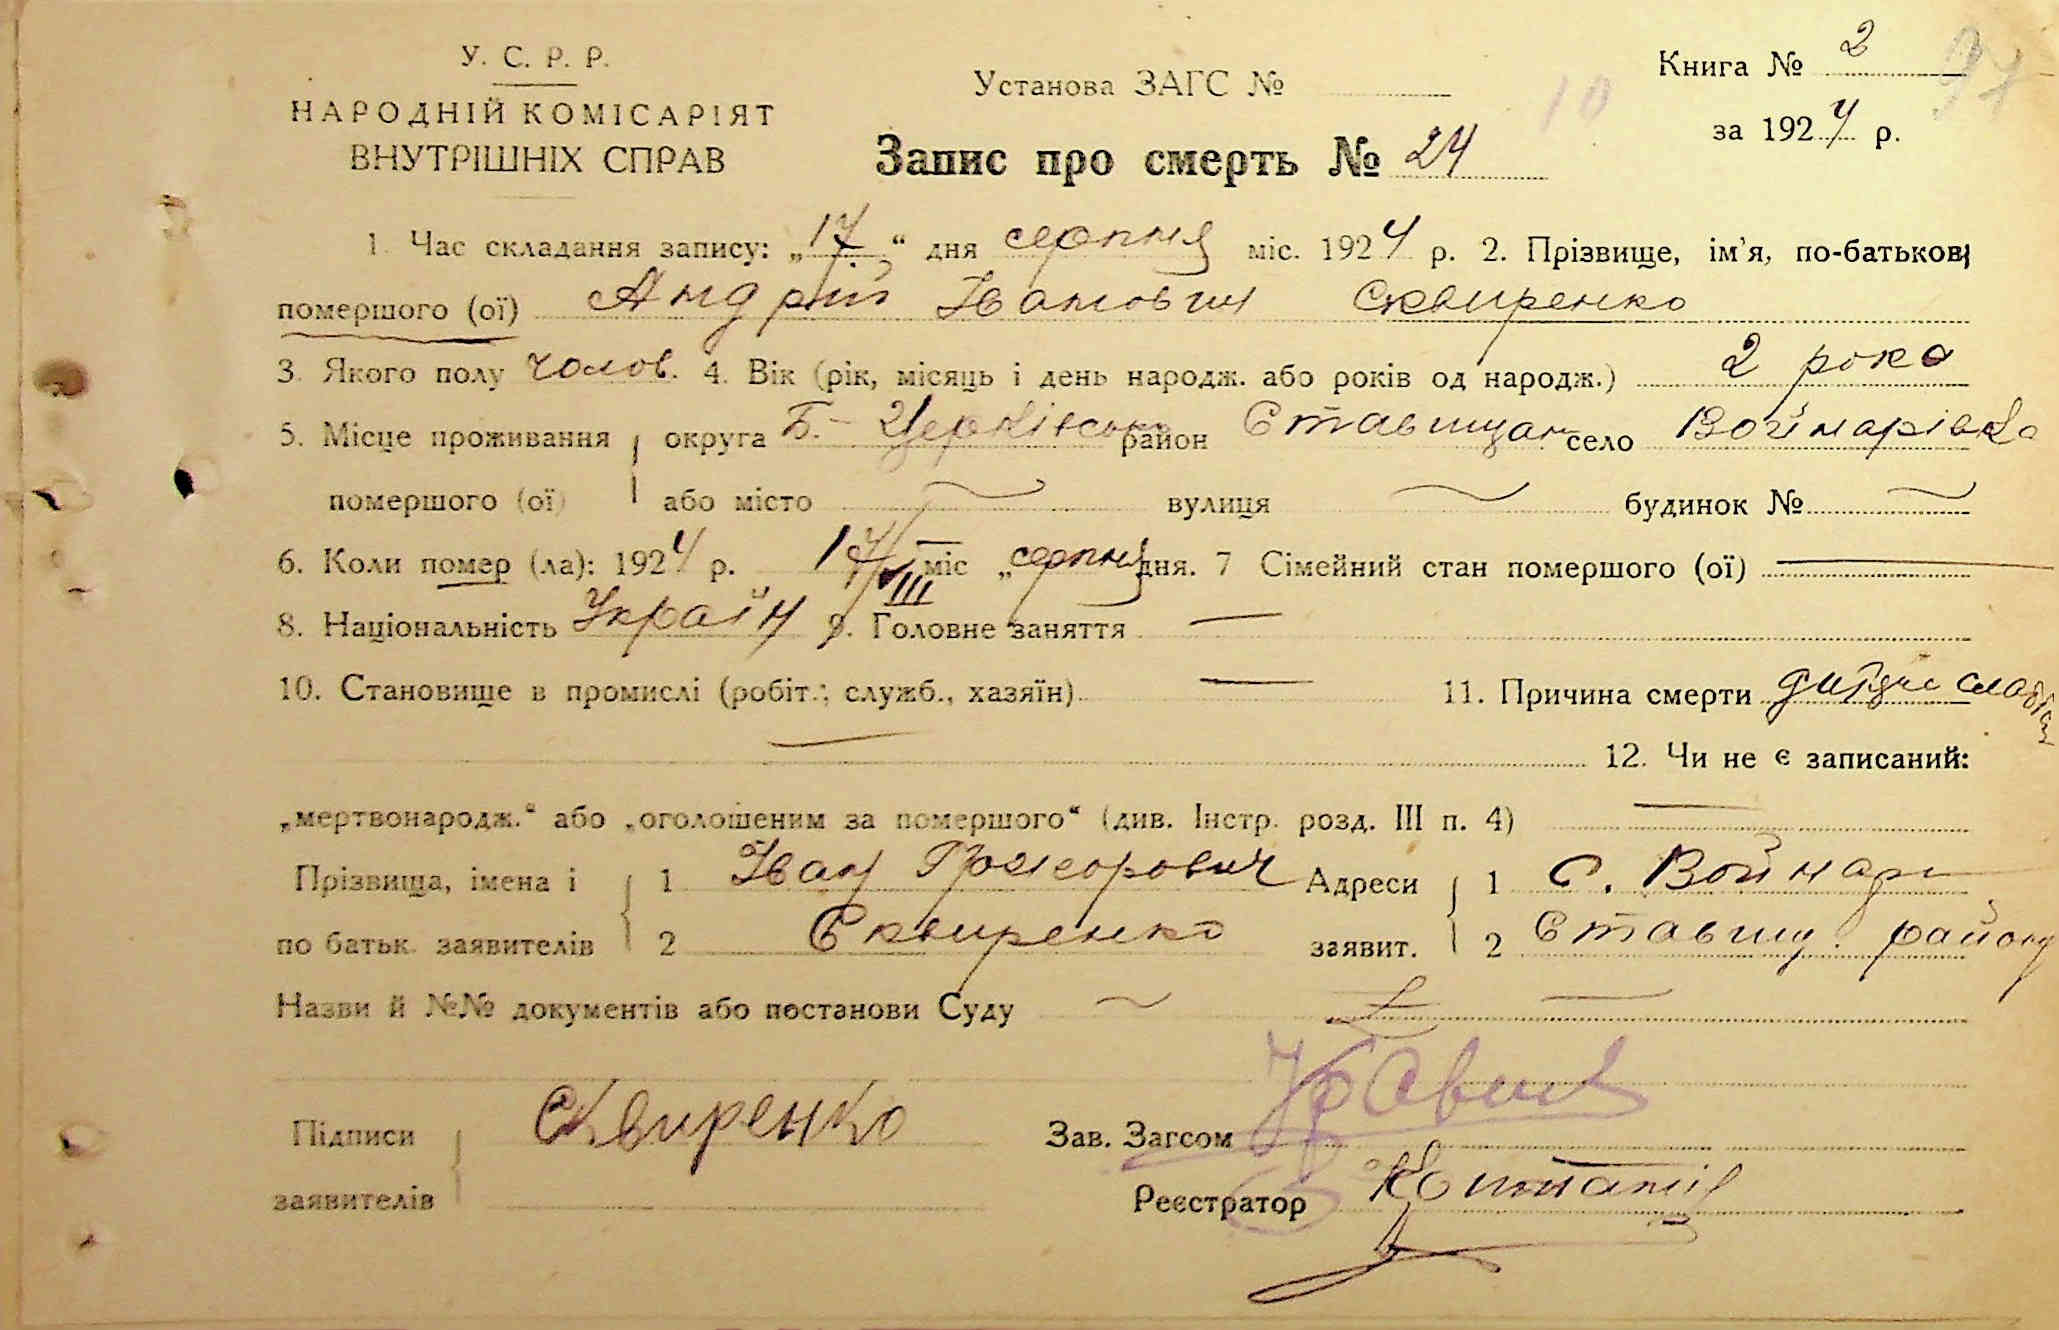 У. С. Р. Р.
НАРОДНІЙ КОМІСАРІЯТ
ВНУТРІШНІХ СПРАВ
Установа ЗАГС №
Запис про смерть № 24
10
Книга № 2
97
за 1924 р.
1. Час складання запису: „17“ дня серпня міс. 1924 р. 2. Прізвище, ім'я, по-батькові
помершого (ої) Андрій Іванович Сквиренко
3. Якого полу чолов. 4. Вік (рік, місяць і день народж. або років од народж.) 2 рока
5. Місце проживання округа Б.-Церківська район Ставищан село Войнарівка
помершого (ої) або місто вулиця будинок №
6. Коли помер (ла): 1924 р. 17/VIII міс „серпня дня. 7 Сімейний стан помершого (ої)
8. Національність Україн 9. Головне заняття
10. Становище в промислі (робіт., служб., хазяїн) 11. Причина смерти
12. Чи не є записаний:
„мертвонародж.“ або „оголошеним за помершого“ (див. Інстр. розд. III п. 4)
Прізвища, імена і 1 Іван Адреси 1 С. Войнар
по батьк. заявителів 2 Сквиренко заявит. 2 Ставищ. району
Назви й №№ документів або постанови Суду
Підписи Сквиренко Зав. Загсом
заявителів Реєстратор